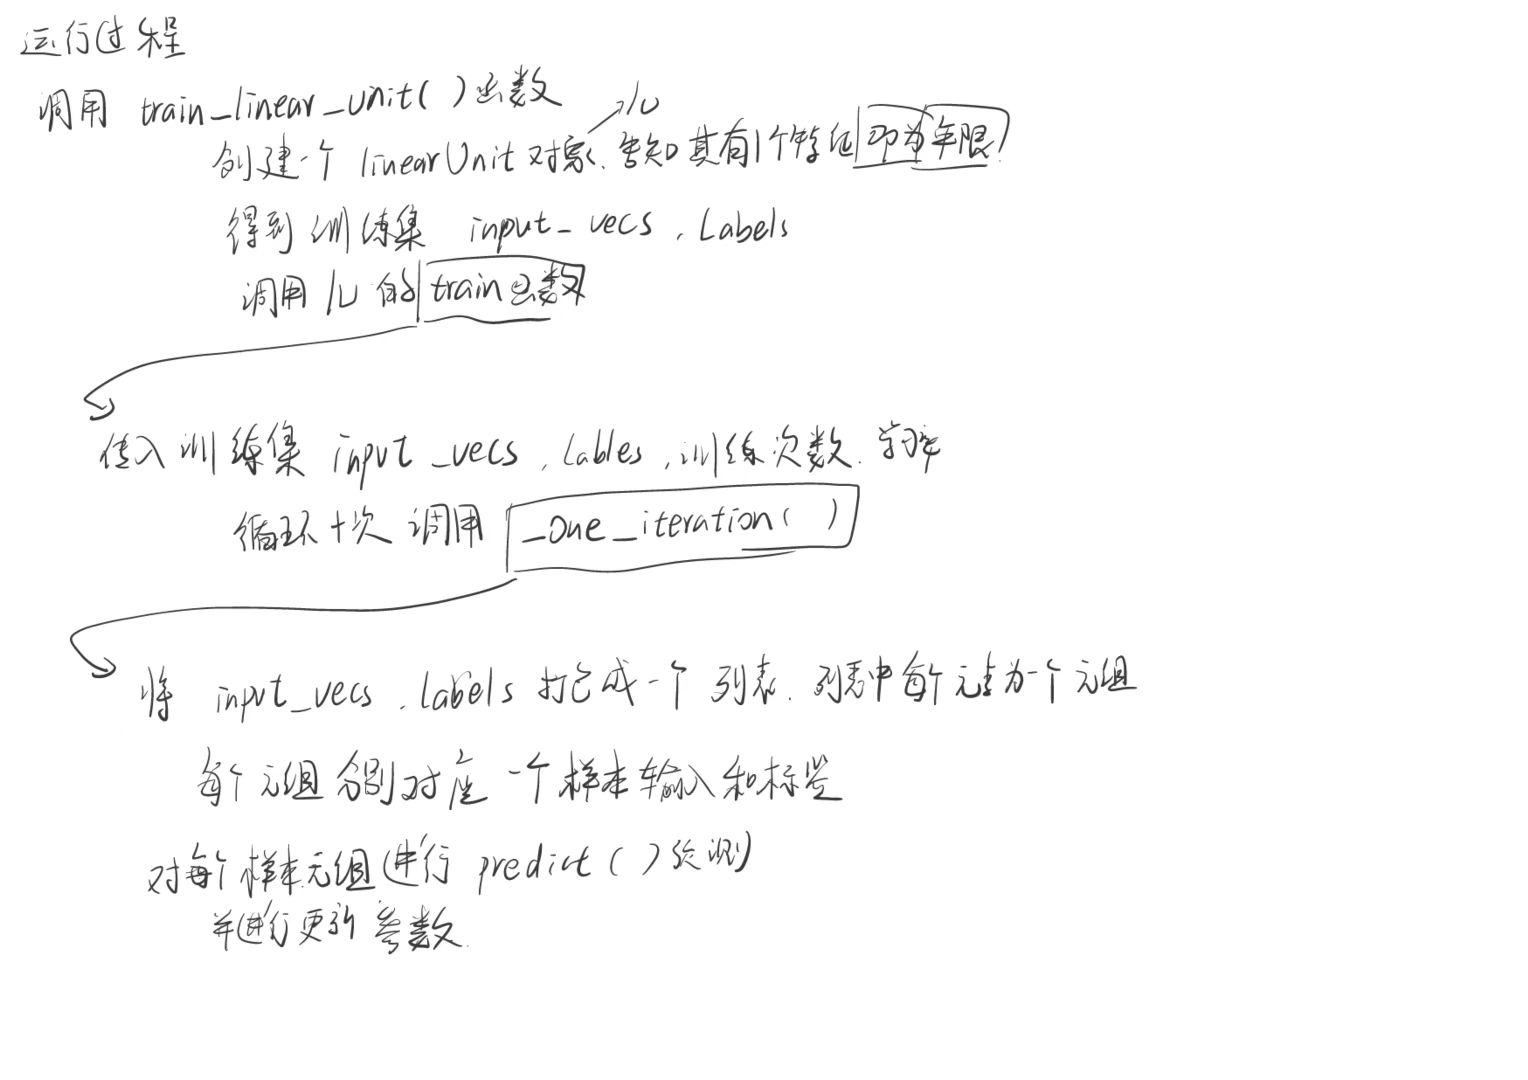 运行过程
调用 train_linear_unit( )函数
lu
创建一个 linearUnit 对象、告知其有1个特征即为年限
得到训练集 input_vecs、Labels
调用 lu 的 train函数
传入训练集 input_vecs、Lables、训练次数、学习率
循环十次 调用 _one_iteration( )
将 input_vecs、Labels 打包成一个 列表、列表中每个元素为一个元组
每个元组分别对应 一个样本输入和标签
对每个样本元组进行 predict( )预测
并进行更新参数